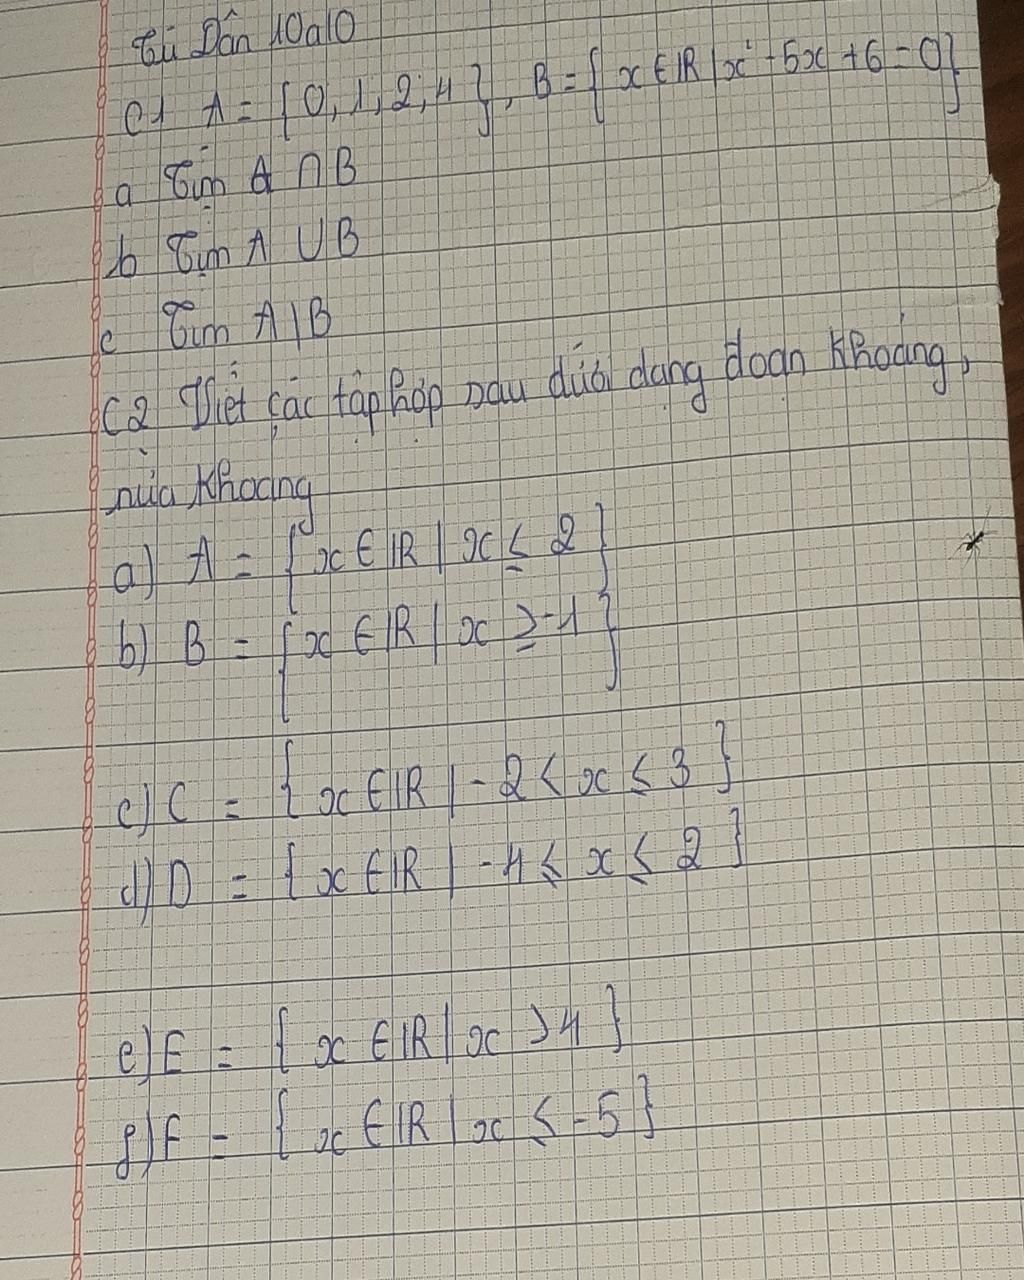 Tú Dân 10a10
C1 A = {0, 1, 2, 4}, B = {x ∈ ℝ | x² - 5x + 6 = 0}
a Tìm A ∩ B
b Tìm A ∪ B
c Tìm A \ B
C2 Viết các tập hợp sau dưới dạng đoạn Khoảng,
nửa Khoảng
a) A = {x ∈ ℝ | x ≤ 2}
b) B = {x ∈ ℝ | x ≥ -1}
c) C = {x ∈ ℝ | -2 < x ≤ 3}
d) D = {x ∈ ℝ | -4 ≤ x ≤ 2}
e) E = {x ∈ ℝ | x > 4}
f) F = {x ∈ ℝ | x ≤ -5}